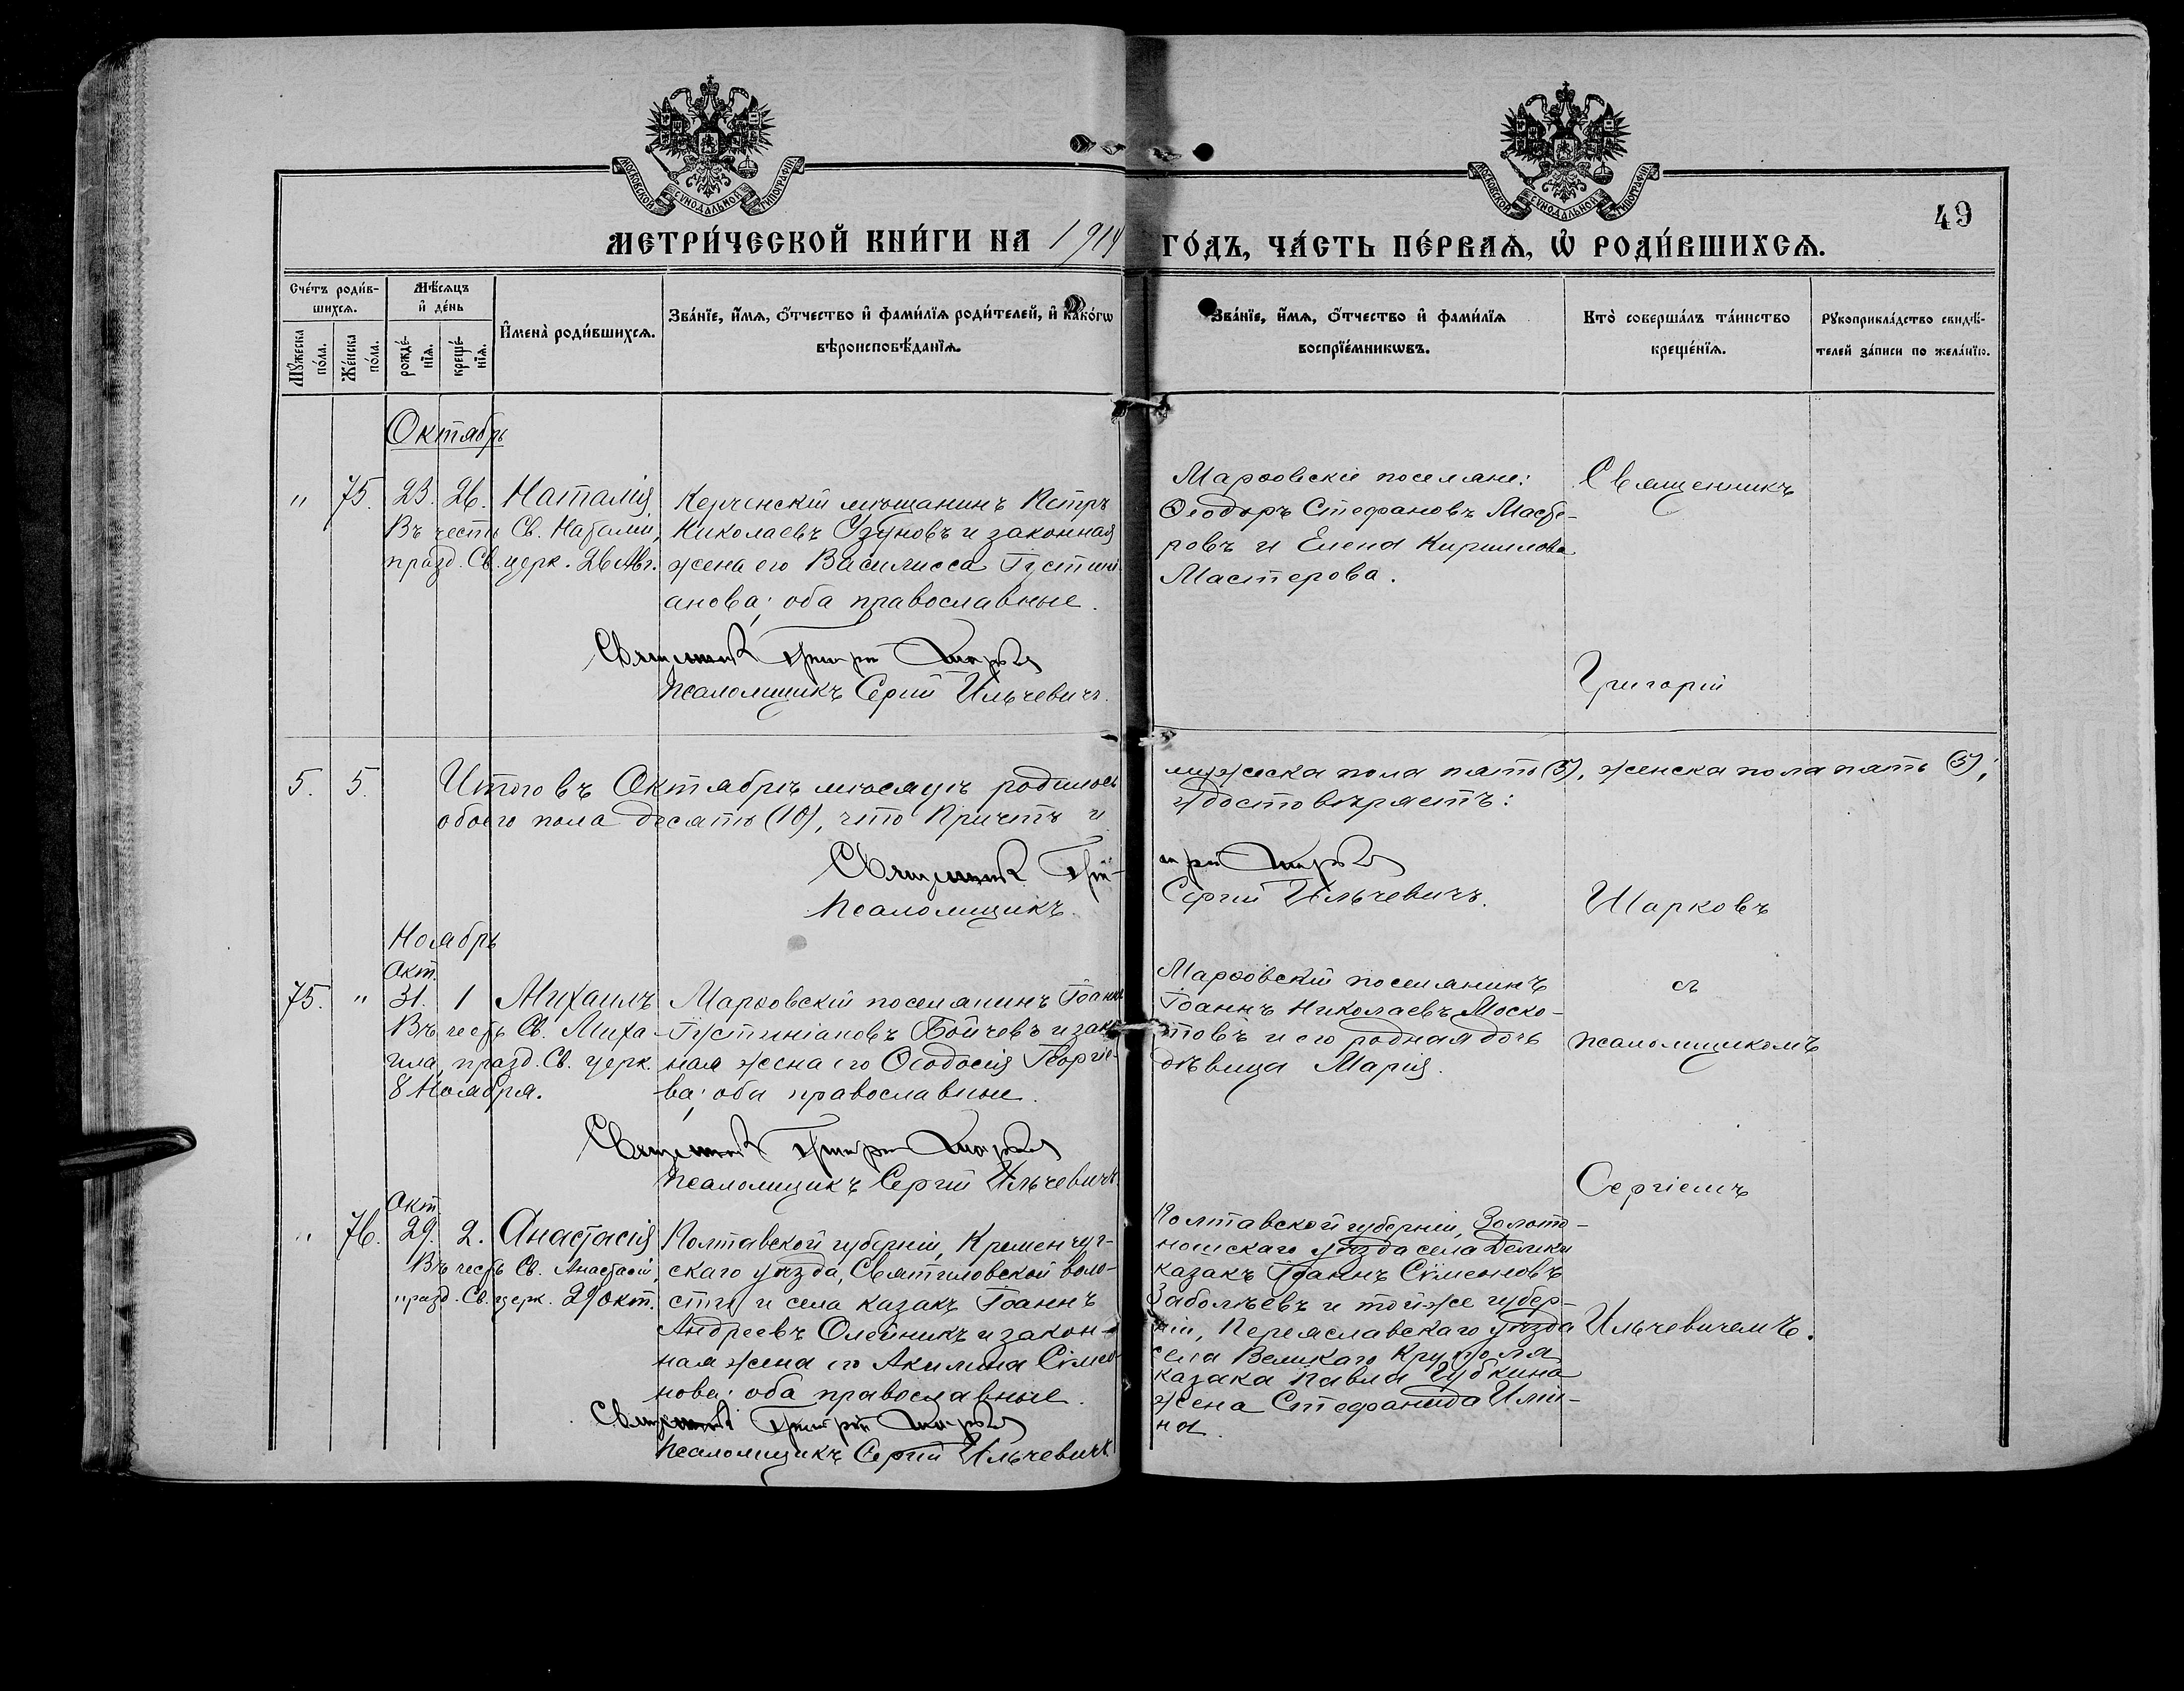 МОСКОВСКОЙ СѴНОДАЛЬНОЙ ТИПОГРАФІИ
МОСКОВСКОЙ СѴНОДАЛЬНОЙ ТИПОГРАФІИ
49
МЕТРИ́ЧЕСКОЙ КНИ́ГИ НА 1914 ГО́ДЪ, ЧА́СТЬ ПЕ́РВАѦ, Ѡ҆ РОДИ́ВШИХСѦ.
Сче́тъ роди́в-
шихсѧ.
Мѣ́сѧцъ
и҆ де́нь
Мꙋ́жеска
по́ла.
Же́нска
по́ла.
рожде́-
нїѧ.
креще́-
нїѧ.
И҆мена̀ роди́вшихсѧ.
Зва́нїе, и҆́мѧ, ѻ҆́тчество и҆ фами́лїѧ роди́телей, и҆ како́гѡ
вѣроисповѣ́данїѧ.
Зва́нїе, и҆́мѧ, ѻ҆́тчество и҆ фами́лїѧ
воспрїе́мникѡвъ.
Кто̀ соверша́лъ та́инство
креще́нїѧ.
Рꙋкоприкла́дство свидѣ́-
телей за́писи по жела́нїю.
Октябрь
" 75. 23. 26. Наталія
Въ честь Св. Наталіи,
празд. Св. церк. 26 Авг.
Керченскій мѣщанинъ Петръ
Николаевъ Узуновъ и законная
жена его Василисса Густини
анова; оба православные.
Священникъ Григорій Шарковъ
Псаломщикъ Сергій Ильчевичъ.
Марѳовскіе поселяне:
Ѳеодоръ Стефановъ Масте-
ровъ и Елена Кириллова
Мастерова.
Священникъ
Григорій
5. 5. Итого въ Октябрѣ мѣсяцѣ родилось мужеска пола пять (5), женска пола пять (5),
обоего пола десять (10), что Причтъ и удостовѣряетъ:
Священникъ Григорій Шарковъ
Псаломщикъ Сергій Ильчевичъ.
Шарковъ
Ноябрь
Окт.
75. " 31. 1 Михаилъ
Въ честь Св. Миха-
ила, празд. Св. церк.
8 Ноября.
Марѳовскій поселянинъ Іоаннъ
Густиніановъ Бойчевъ и закон
ная жена его Ѳеодосія Георгіе-
ва; оба православные.
Священникъ Григорій Шарковъ
Псаломщикъ Сергій Ильчевичъ
Марѳовскій поселянинъ
Іоаннъ Николаевъ Моско-
товъ и его родная дочь
дѣвица Марія.
съ
псаломщикомъ
Сергіемъ
Окт.
" 76. 29. 2. Анастасія
Въ честь Св. Анастасіи,
празд. Св. церк. 29 Окт.
Полтавской губерніи, Кременчуг-
скаго уѣзда, Святиловской воло-
сти и села казакъ Іоаннъ
Андреевъ Олейникъ и закон-
ная жена его Акилина Сѵмео-
нова; оба православные.
Священникъ Григорій Шарковъ
Псаломщикъ Сергій Ильчевичъ
Полтавской губерніи, Золото-
ношскаго уѣзда села
казакъ Іоаннъ Сѵмеоновъ
Заболѣевъ и той же губер-
ніи, Переяславскаго уѣзда
села Великаго Круполя
казака Павла Чубкина
жена Стефанида Ильи-
на.
Ильчевичемъ.